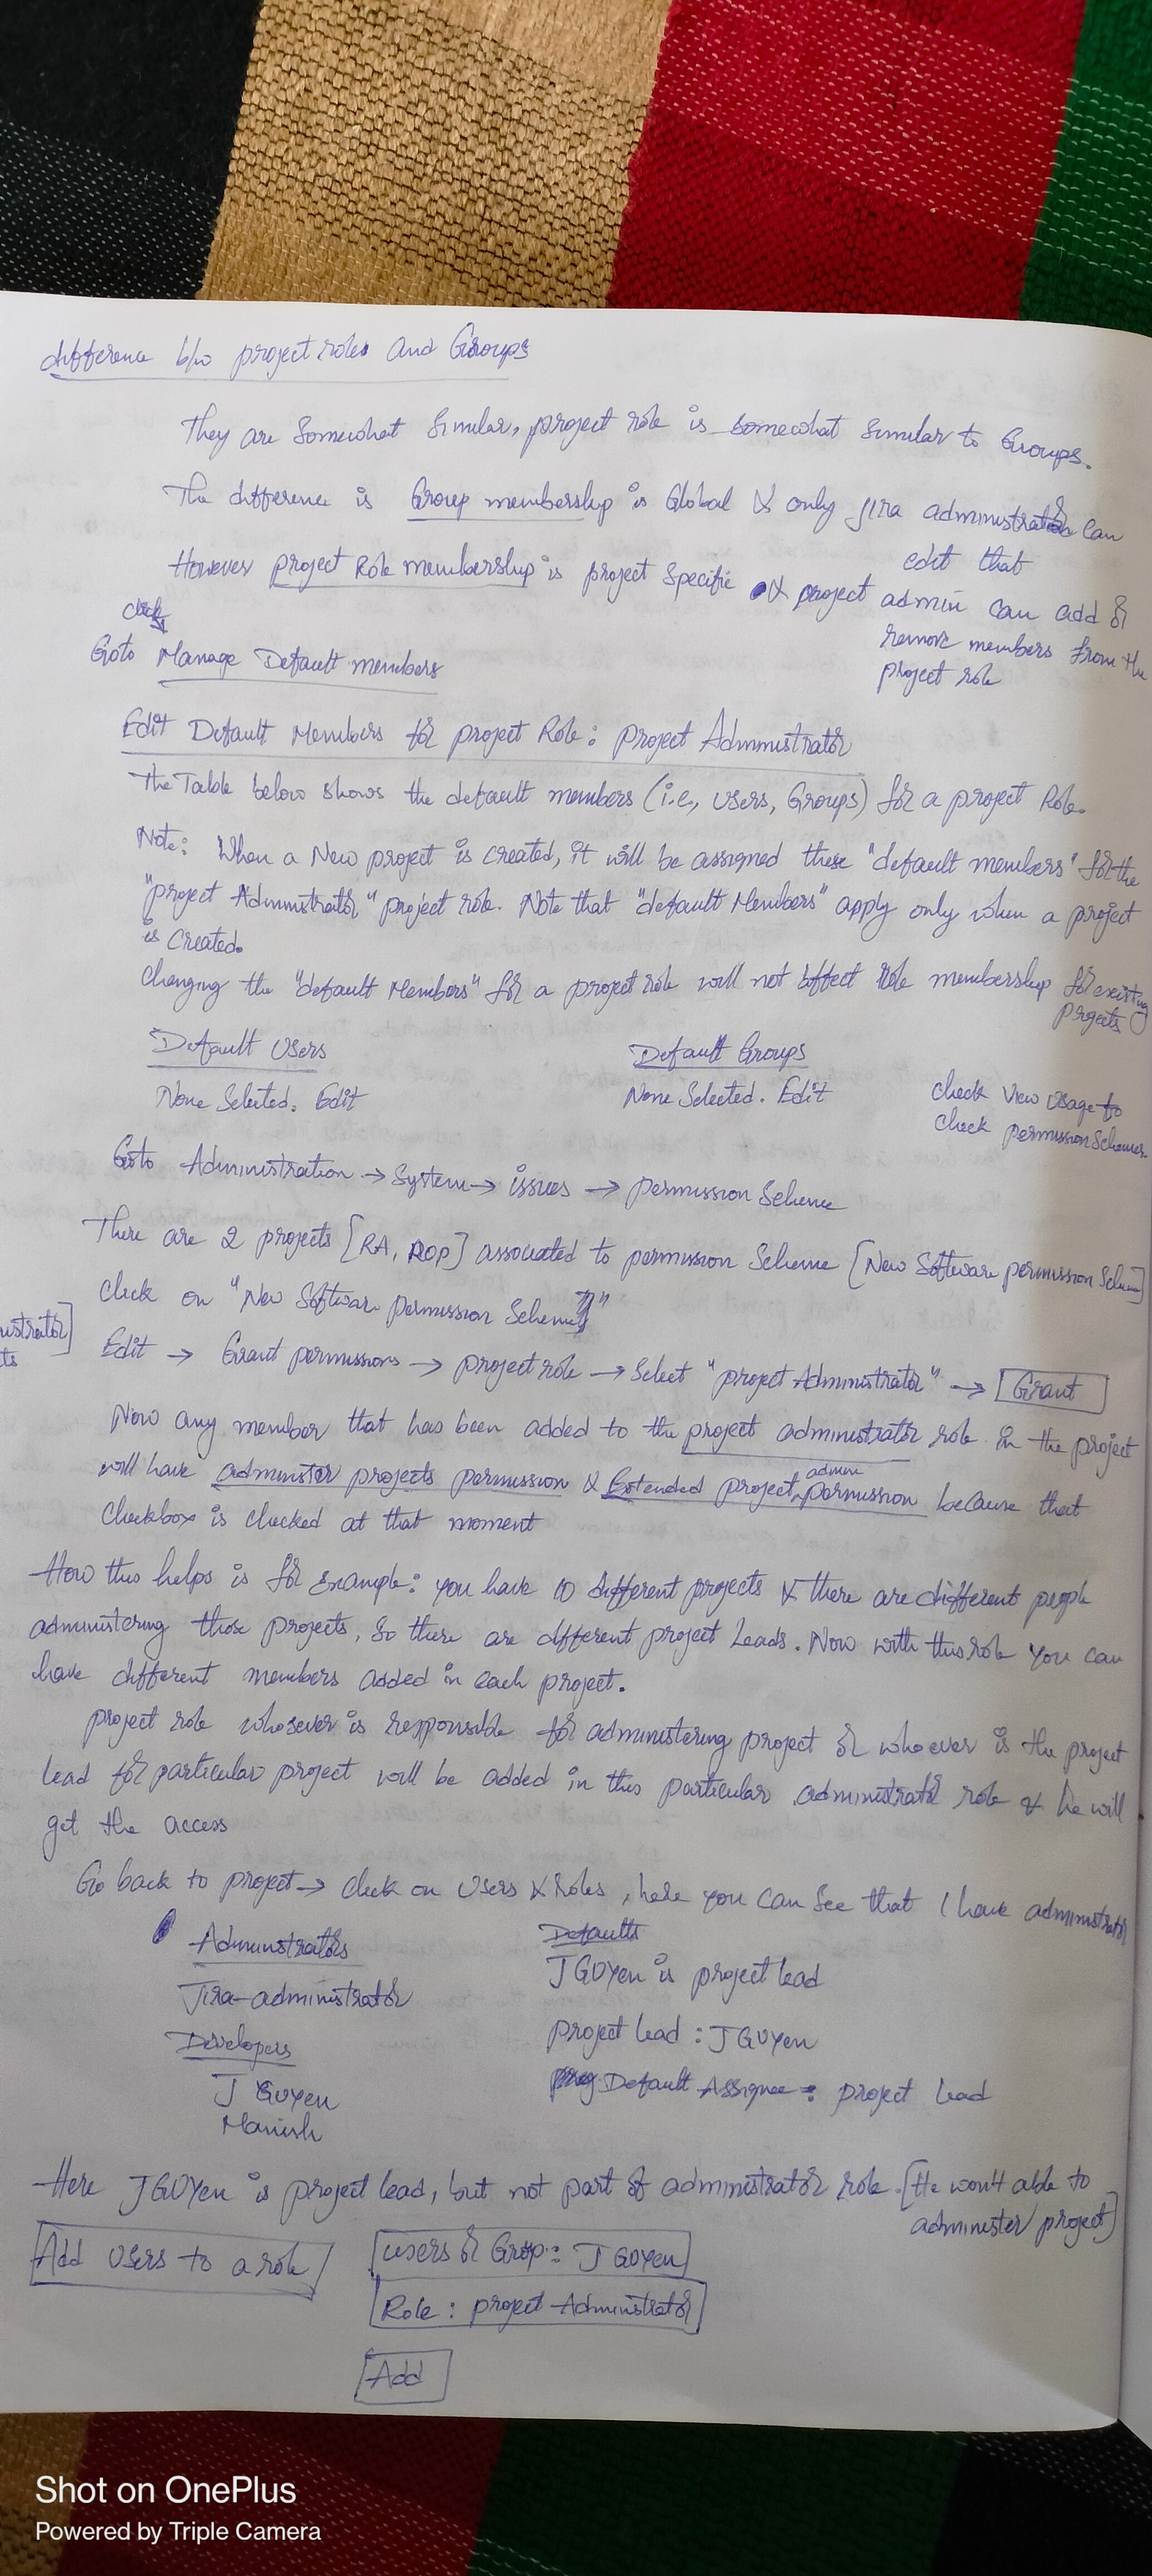 difference b/w project roles and Groups
They are Somewhat Similar, project role is somewhat similar to Groups.
The difference is Group membership is Global & only jira administrator can
edit that
However project Role membership is project specific & project admin can add or
remove members from the
project role
click
Goto Manage Default members
Edit Default Members for project Role: project Administrator
The Table below shows the default members (i.e, users, Groups) for a project Role.
Note: When a New project is created, it will be assigned these "default members" for the
"project Administrator" project role. Note that "default Members" apply only when a project
is created.
changing the "default Members" for a project role will not affect role membership for existing
projects
Default Users Default Groups
None Selected. Edit None Selected. Edit
check View Usage to
check permission Schemes.
Goto Administration → System → issues → permission Scheme
There are 2 projects [RA, ROP] associated to permission Scheme [New Software permission Scheme]
click on "New Software permission Scheme"
Edit → Grant permissions → project role → Select "project Administrator" → Grant
Now any member that has been added to the project administrator role in the project
will have administer projects permission & Extended project admin permission because that
Checkbox is checked at that moment
How this helps is for Example: you have 10 different projects & there are different people
administering those projects, so there are different project Leads. Now with this role you can
have different members added in each project.
project role whosever is responsible for administering project or whoever is the project
lead for particular project will be added in this particular administrator role & he will
get the access
Go back to project → click on Users & roles, here you can See that I have administrator
Administrators Defaults
Jira-administrator J GUYen is project lead
Developers project lead : J GUYen
J GUYen Default Assignee : project lead
Manish
Here J GUYen is project lead, but not part of administrator role. [He won't able to
administer project]
Add Users to a role users or Group: J GUYen
Role : project Administrator
Add
Shot on OnePlus
Powered by Triple Camera